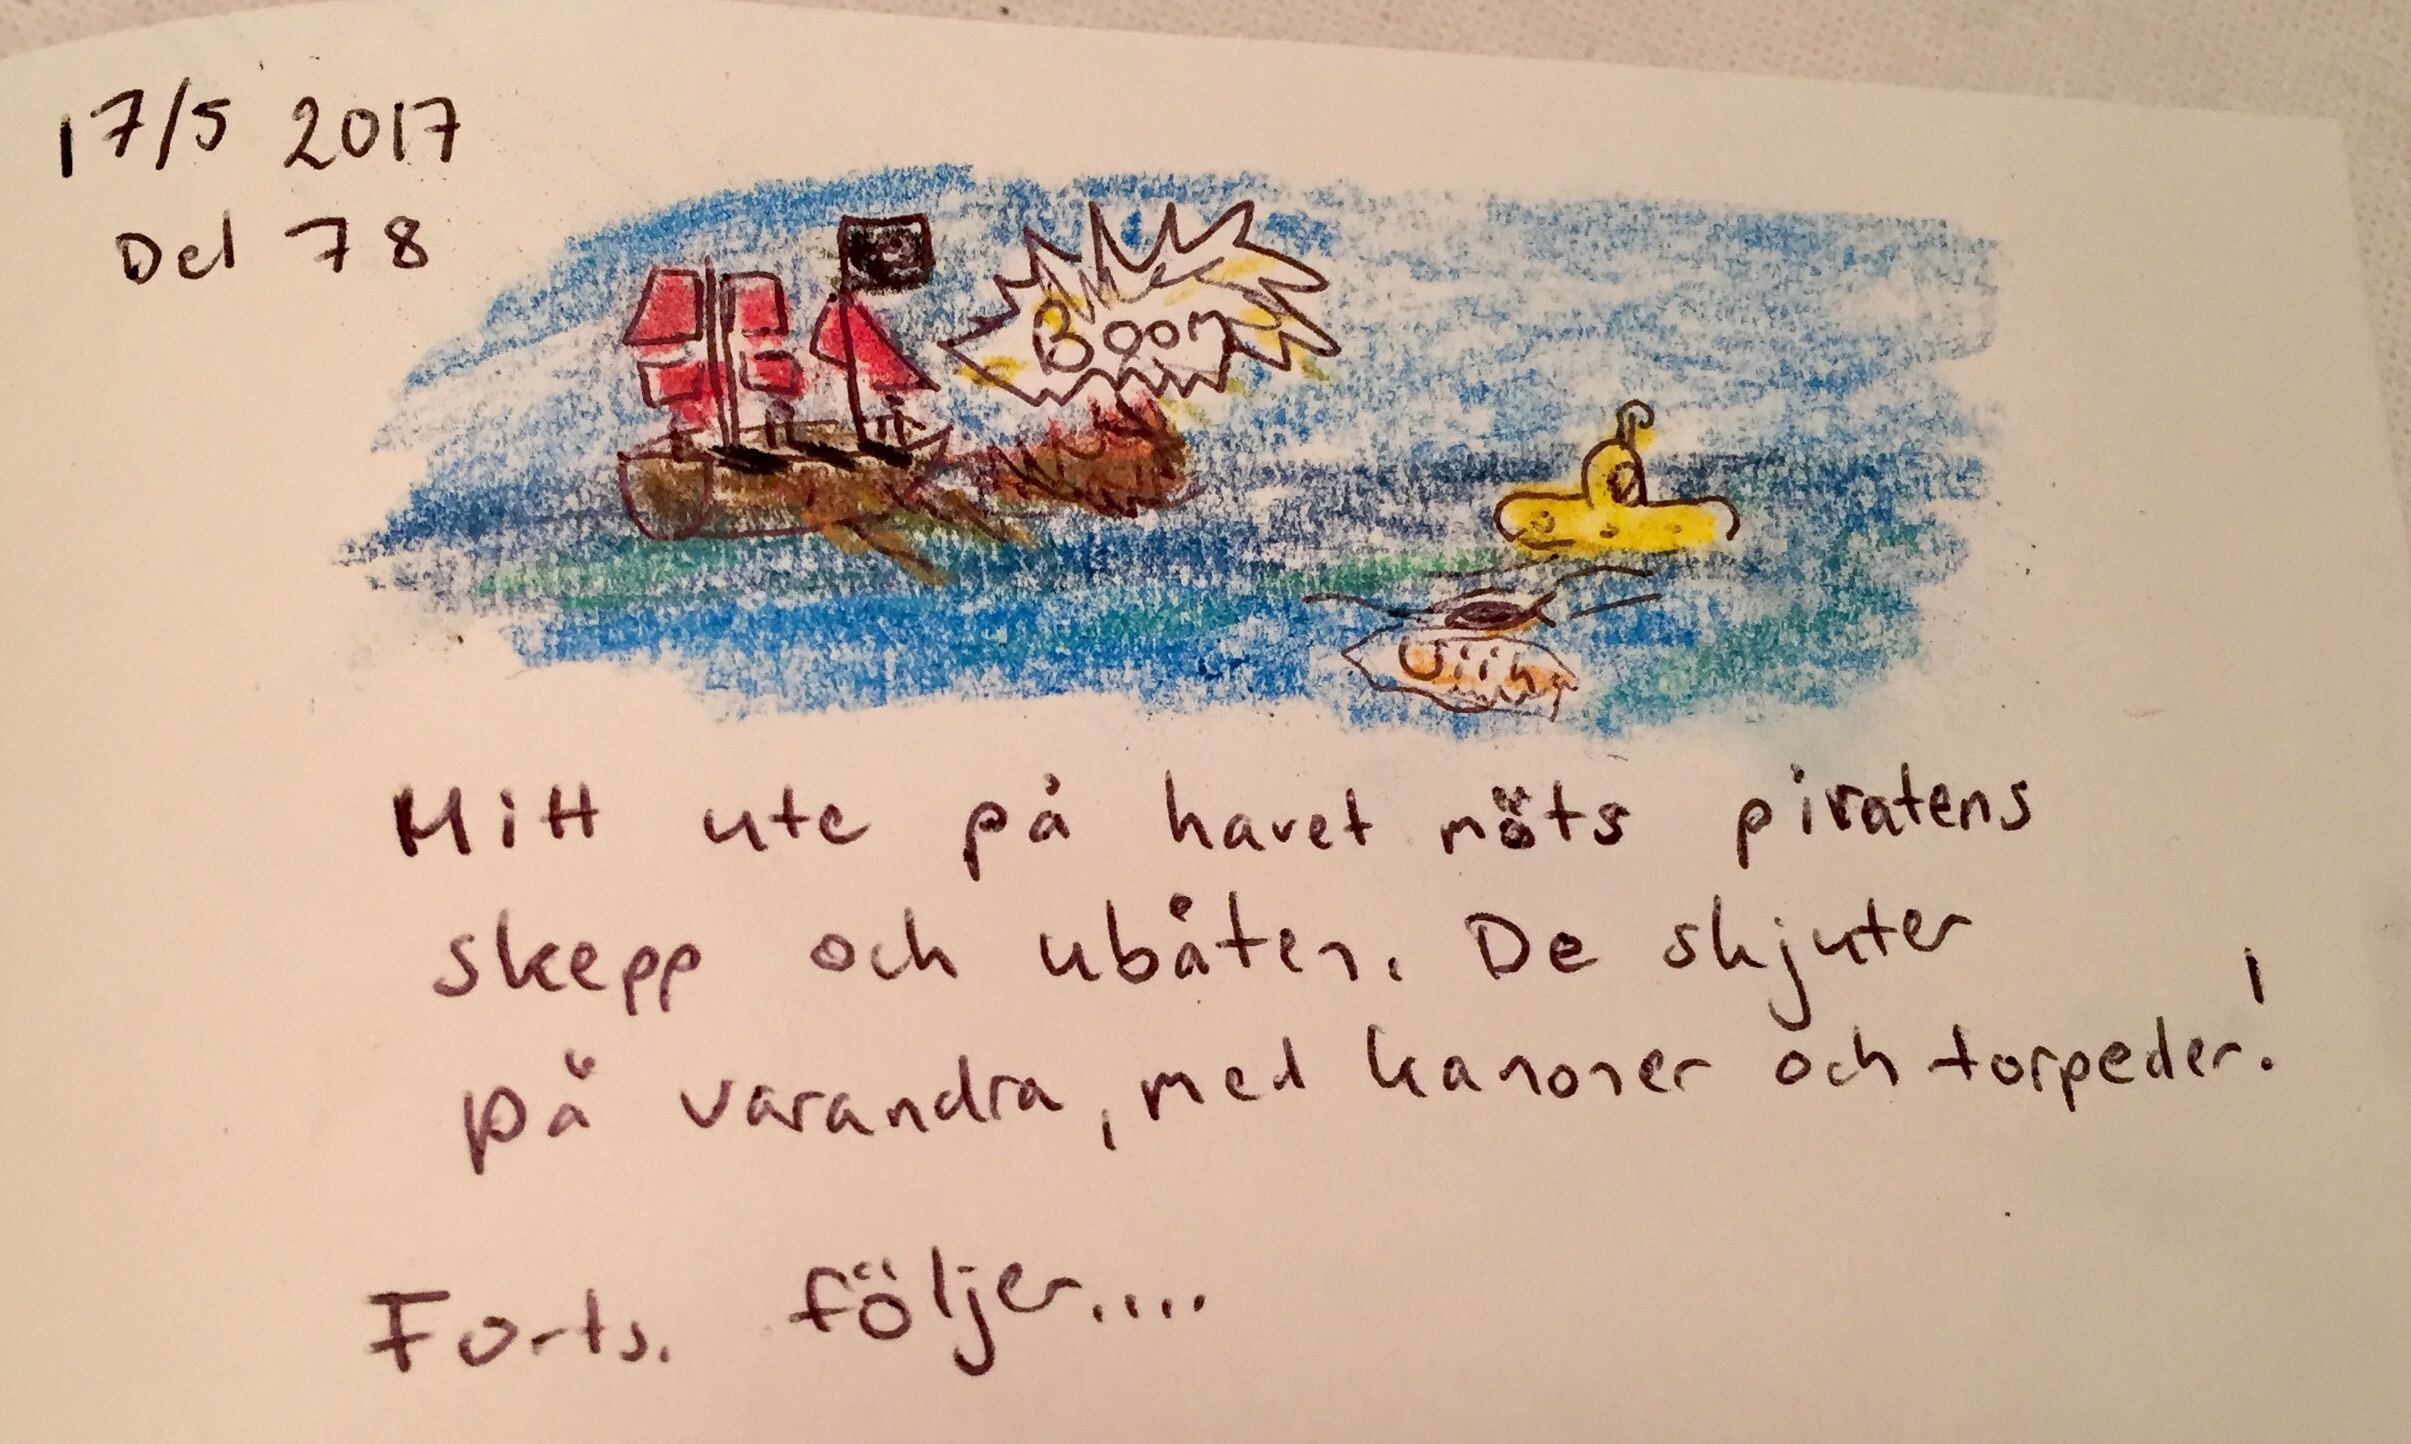 17/5 2017
Del 78
Boom
Uiih
Mitt ute på havet möts piratens
skepp och ubåten. De skjuter
på varandra, med kanoner och torpeder!
Forts. följer....